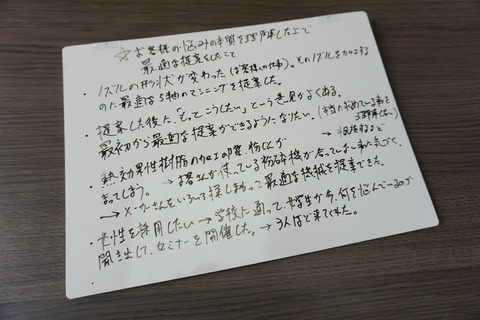 ☆お客様の悩みの本質を理解した上で
最適な提案をしたこと
・ノズルの形状が変わった(お客様の仕事)。そのノズルを加工する
のに最適な5軸のマシニングを提案した。
・提案した後に、「もってこうしたい」という意見がよくある。
最初から最適な提案ができるようになりたい。(本当に求めている事を
理解し、
→
・熱効果性樹脂の加工の際、粉じんが
まってしまう。→お客さんが使っている粉砕機が合っていない事に気づく。
→メーカーさんをいろいろ探しまわって最適な機械を提案できた。
・女性を採用したい→学校に通って大学生が今、何を悩んでいるのか
聞き出して、セミナーを開催した。→3人ほど来てくれた。
・